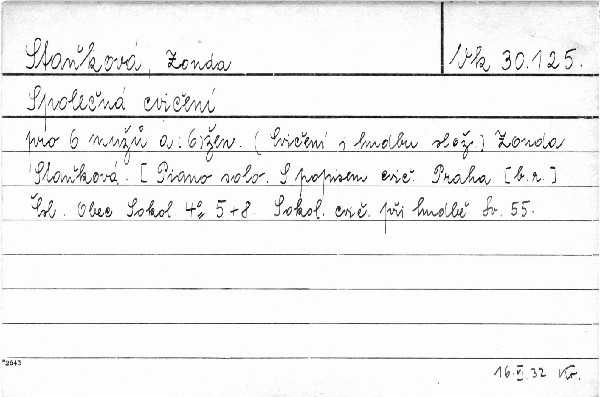 Staňková, Zonda
Vk 30.125.
Společná cvičení
pro 6 mužů a: 6) žen. (Cvičení i hudbu slož.) Zonda
Staňková. [Piano solo. S popisem cvič. Praha [b.r.]
Čsl. Obec Sokol 4° 5+8. Sokol. cvič. při hudbě Sv. 55.
*2643
16.VI.32 Kr.